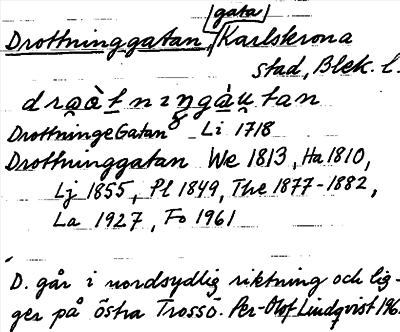 gata
Drottninggatan, Karlskrona
stad, Blek. l.
Drottninge Gatan 8 Li 1718
Drottninggatan We 1813, Ha 1810,
Lj 1855, Pl 1849, The 1877-1882,
La 1927, Fo 1961
D. går i nordsydlig riktning och lig-
ger på östra Trossö. Per-Olof Lindqvist 196